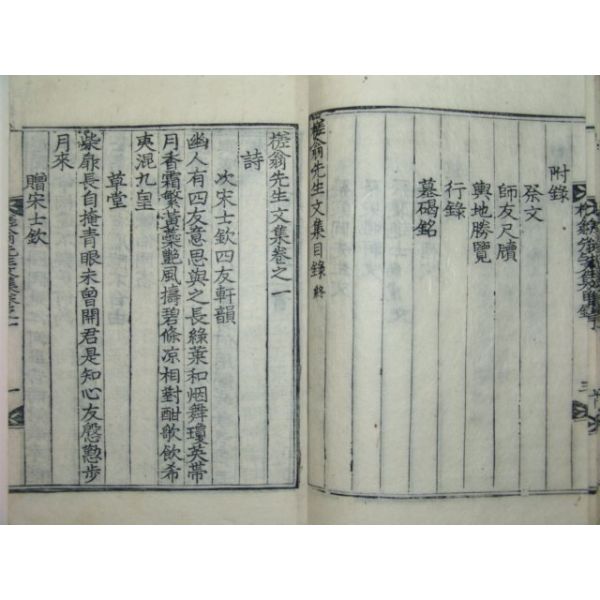 附錄
祭文
師友尺牘
輿地勝覽
行錄
墓碣銘
槎翁先生文集目錄 終
槎翁先生文集卷之一
詩
次宋士欽四友軒韻
幽人有四友意思與之長綠葉和烟舞瓊英帶
月香霜繁黃蘂艶風擣碧條凉相對酣歌飲希
夷混九皇
草堂
柴扉長自掩青眼未曾開君是知心友慇懃步
月來
贈宋士欽